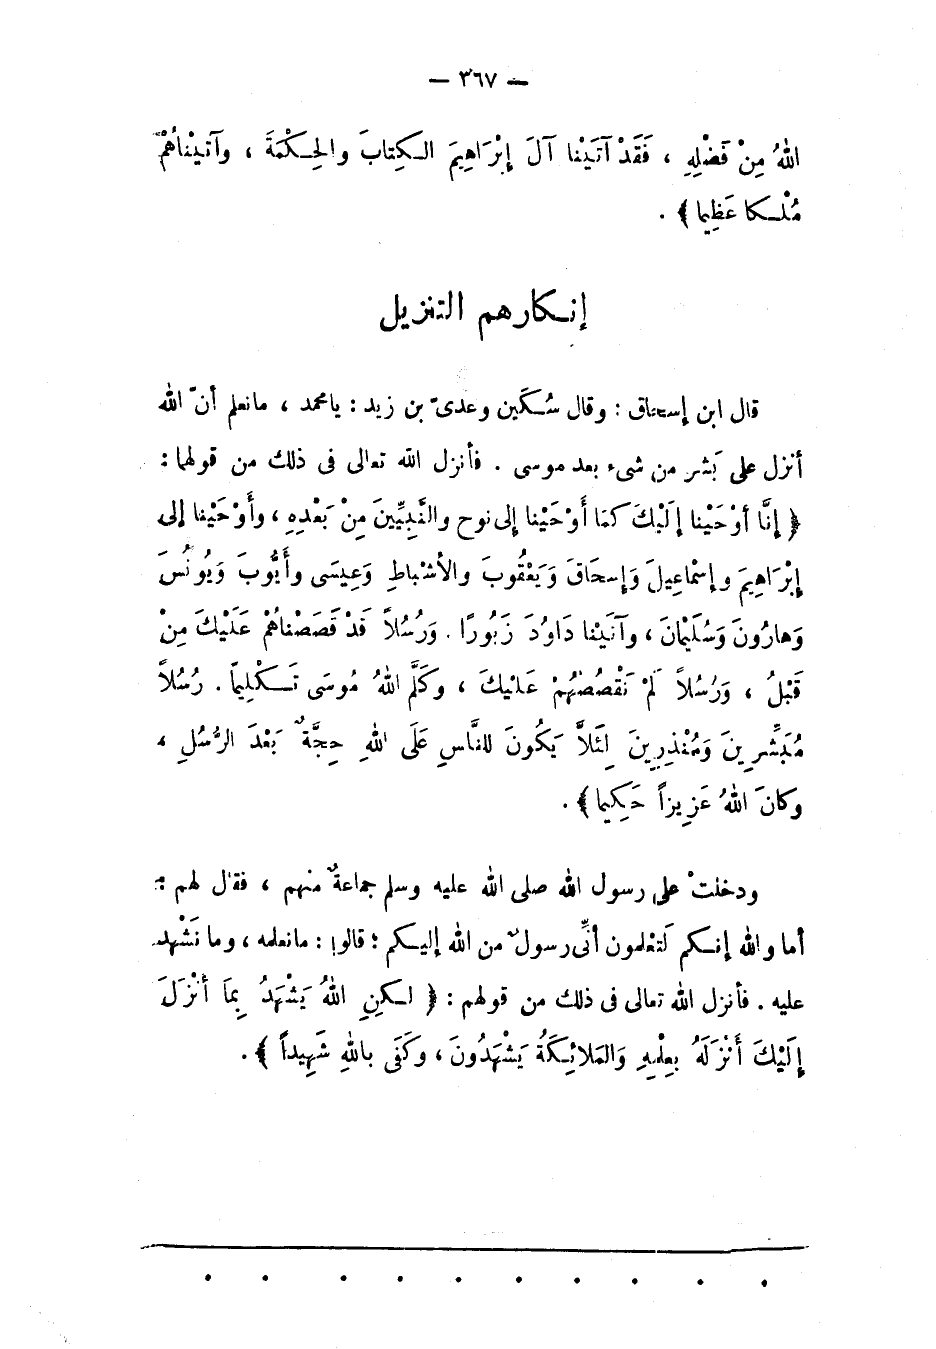 — ٣٦٧ —
اللهُ مِنْ فَضْلِهِ ، فَقَدْ آتَيْنا آلَ إِبْرَاهِيمَ الكِتابَ والحِكْمَةَ ، وآتَيْناهُمْ
مُلْكا عَظِيما﴾ .
إنكارهم التنزيل
قال ابن إسحاق : وقال سُكَين وعدىّ بن زيد : يا محمد ، ما نعلم أنّ الله
أنزل على بَشر من شىء بعد موسى . فأنزل الله تعالى فى ذلك من قولهما :
﴿ إنَّا أوْحَيْنا إلَيْكَ كمَا أَوْحَيْنا إلى نوح والنَّبِيِّينَ مِنْ بَعْدِهِ ، وأَوْحَيْنا إلى
إبْرَاهِيمَ وإسْماعِيلَ وَإسحَاقَ وَيَعْقُوبَ والأسْباطِ وَعِيسَى وأَيُّوبَ وَيُونُسَ
وَهارُونَ وَسُلَيْمَانَ ، وآتَيْنا دَاوُدَ زَبُورًا . وَرُسُلاً قَدْ قَصَصْناهُمْ عَلَيْكَ مِنْ
قَبْلُ ، وَرُسُلاً لَمْ نَقْصُصْهُمْ عَلَيْكَ ، وكَلَّم اللهُ مُوسَى تَكْلِيماً . رُسُلاً
مُبَشِّرِينَ وَمُنْذِرِينَ لِئَلاَّ يَكُونَ للنَّاسِ عَلَى اللهِ حِجَّةٌ بَعْدَ الرُّسُلِ ،
وكانَ اللهُ عَزِيزاً حَكِيما﴾ .
ودخلتْ على رسول الله صلى الله عليه وسلم جماعةٌ منهم ، فقال لهم :
أما والله إنكم لَتعْلمون أنِّى رسولٌ من الله إليكم ؛ قالوا : ما نعلمه ، وما نَشْهد
عليه . فأنزل الله تعالى فى ذلك من قولهم : ﴿ لكنِ اللهُ يَشْهَدُ بِمَا أنْزَلَ
إلَيْكَ أَنْزَلَهُ بِعِلْمِهِ وَالمَلائِكَةُ يَشْهَدُونَ ، وكَفَى باللهِ شَهِيداً ﴾ .
. . . . . . . . . .